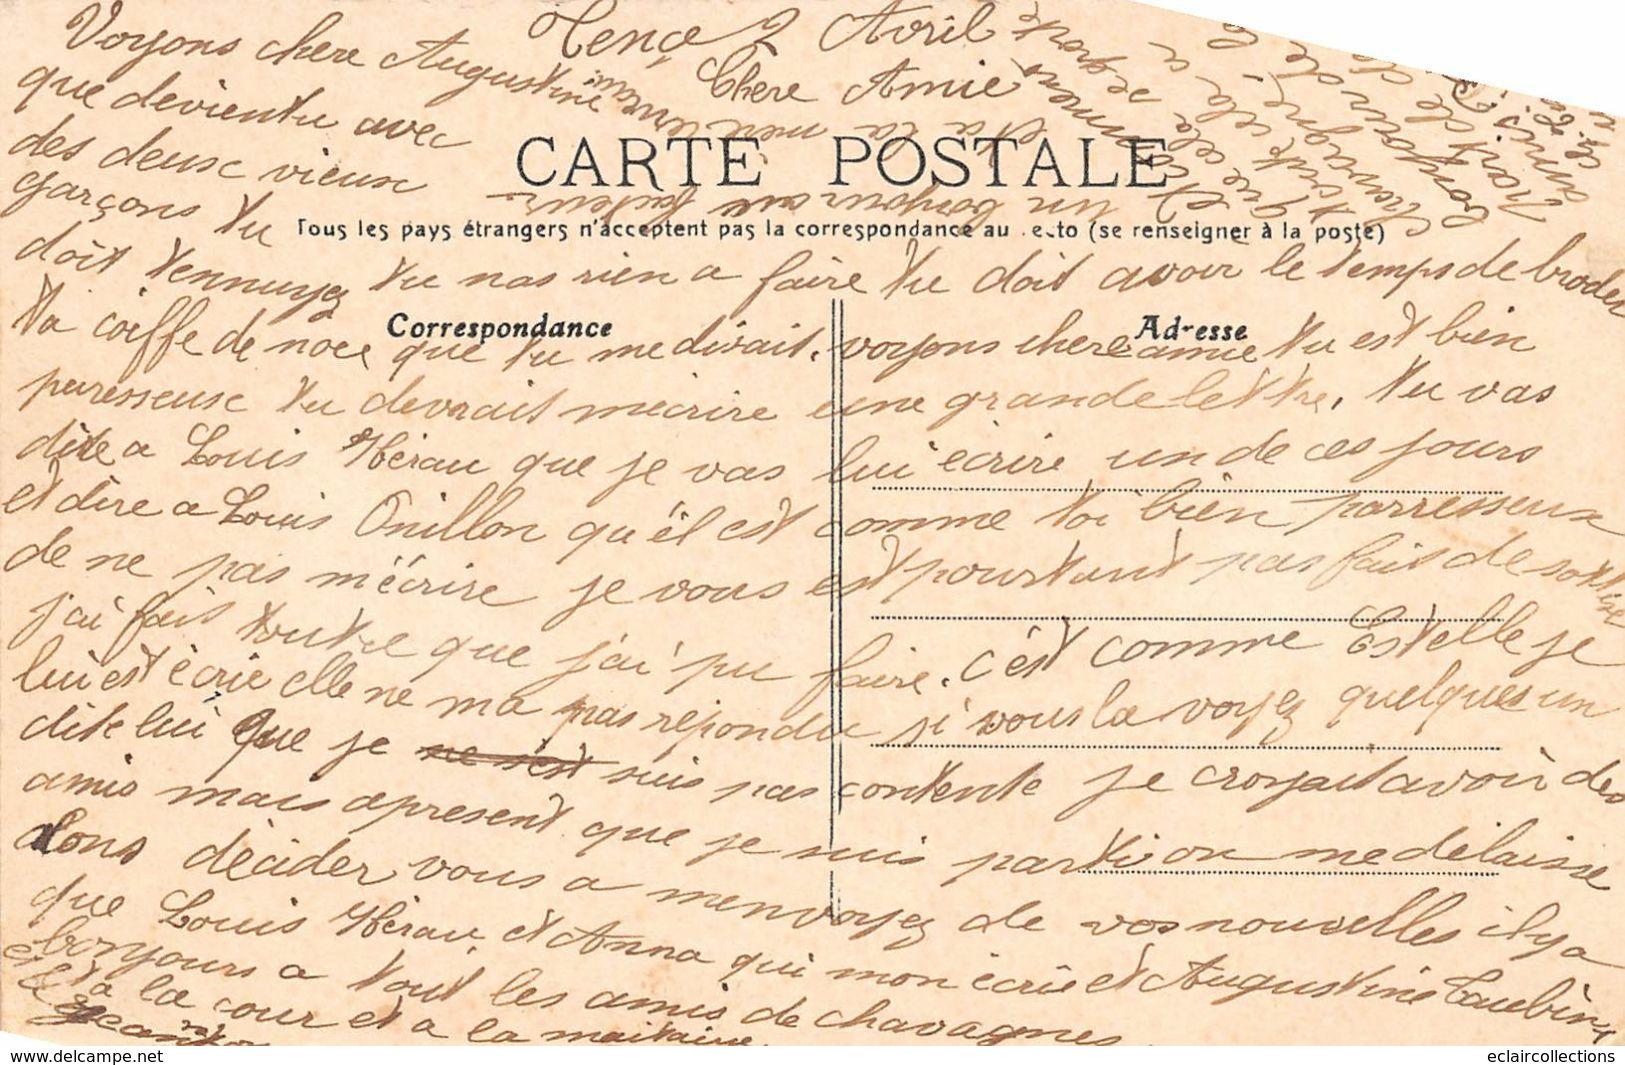 Tence 2 Avril
Chere Amie
Voyons chere Augustine
que devientu avec
des deusc vieux
garçons tu
CARTE POSTALE
Tous les pays étrangers n'acceptent pas la correspondance au recto (se renseigner à la poste)
doit tennuyez tu nas rien a faire tu doit avoir le temps de broder
Correspondance
Adresse
ta coiffe de noce que tu me dirait. voyons chere amie tu est bien
paresseuse tu devrait mecrire une grande lettre, tu vas
dite a Louis Hérau que je vas lui écrire un de ces jours
et dire a Louis Onillon qu'il est comme toi bien parresseux
de ne pas m'écrire je vous est pourtant pas fait de sottise
j'ai fait toutce que j'ai pu faire. c'est comme Estelle je
lui est écrie elle ne ma pas répondu si vous la voyez quelques un
dite lui que je ne s'est suis pas contente je croyait avoir des
amis mais apresent que je suis parti on me délaisse
alons décider vous a menvoyez de vos nouvelles il y a
que Louis Hérau et Anna qui mon écrie et Augustine Taubin
bonjours a tout les amis de chavagnes
et a la cour et a la maitaine
un bonjour au facteur
eclaircollections
www.delcampe.net